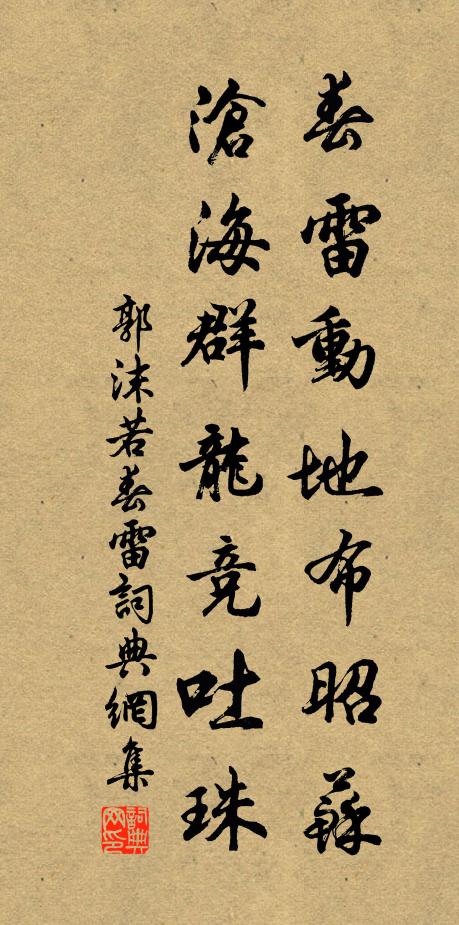 春雷動地布昭蘇
滄海群龍競吐珠
郭沫若春雷詞典網集
詞典网印